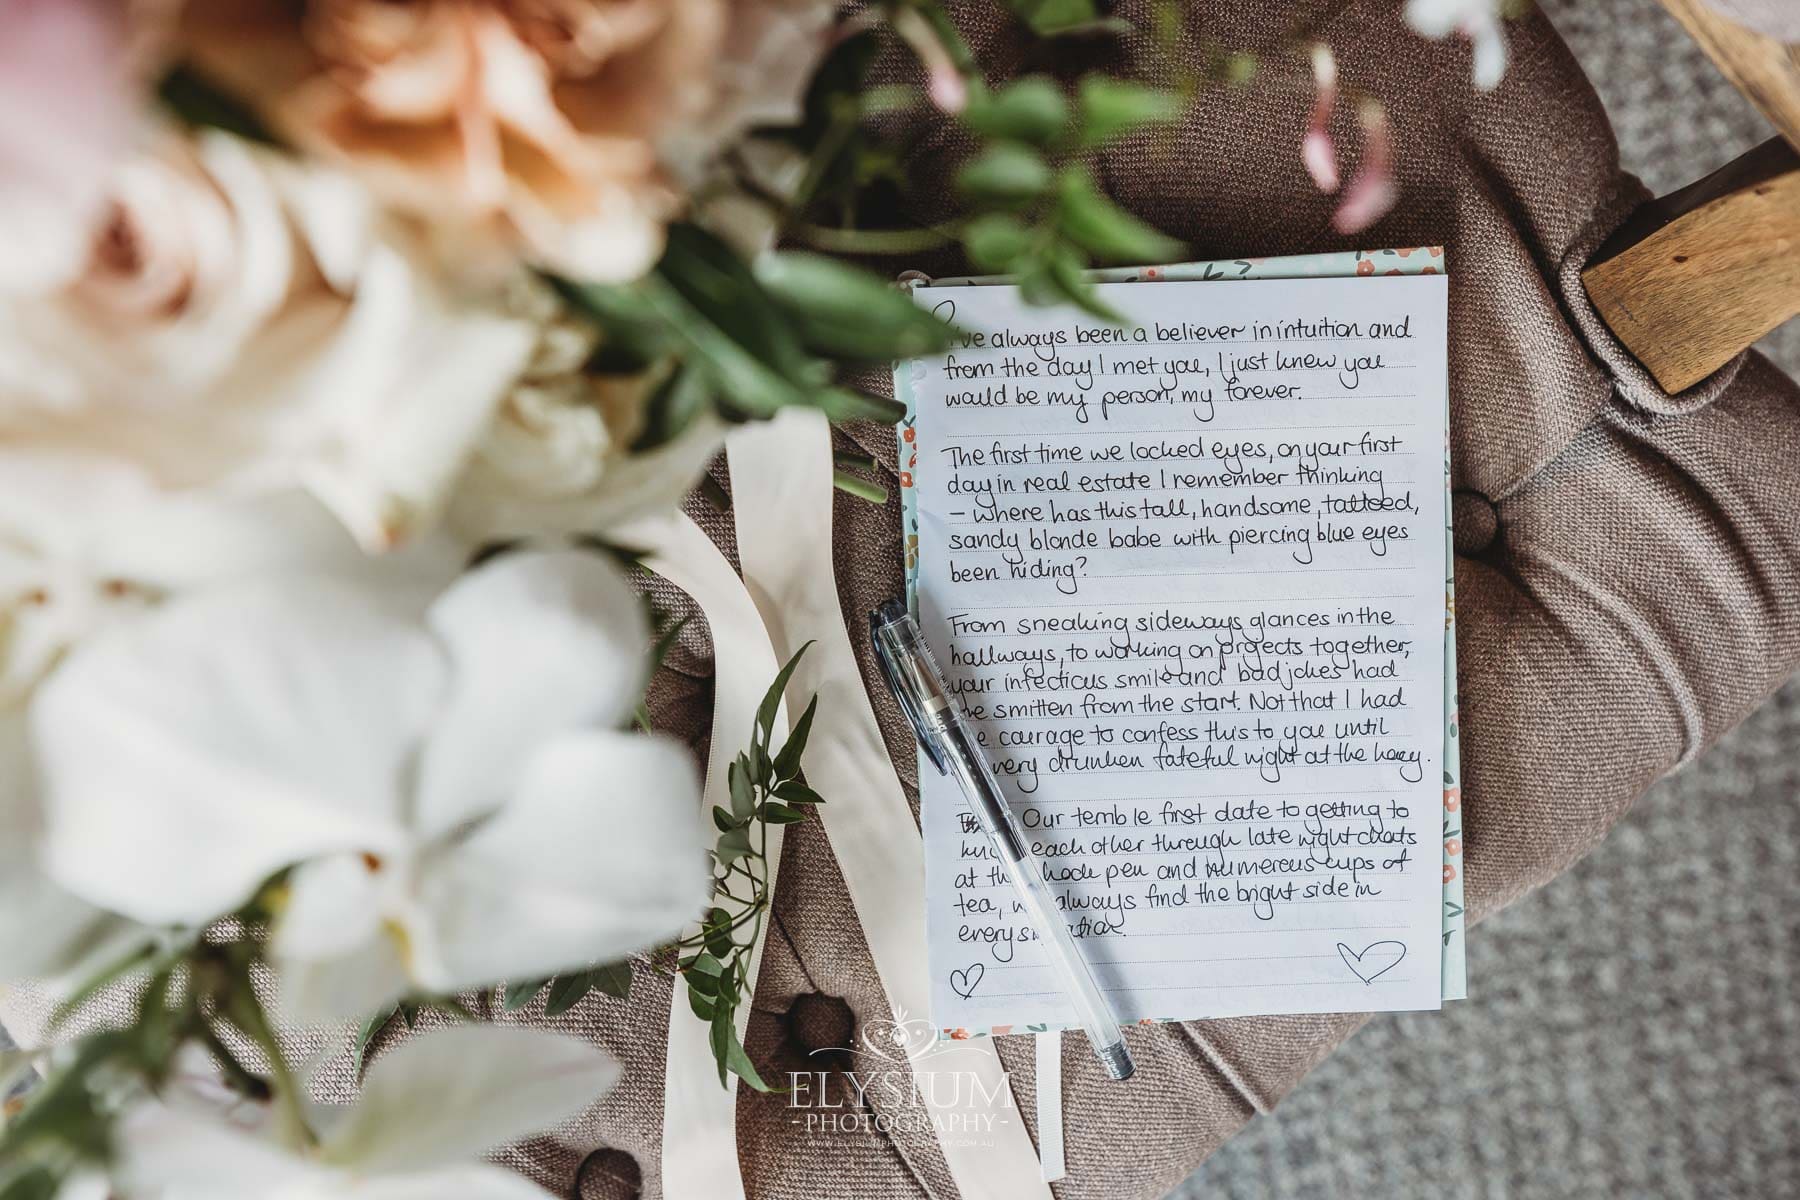 I've always been a believer in intuition and
from the day I met you, I just knew you
would be my person, my forever.
The first time we locked eyes, on your first
day in real estate I remember thinking
- where has this tall, handsome, tattooed,
sandy blonde babe with piercing blue eyes
been hiding?
From sneaking sideways glances in the
hallways, to working on projects together,
your infectious smile and bad jokes had
me smitten from the start. Not that I had
courage to confess this to you until
very drunken fateful night at the
Our terrible first date to getting to
each other through late night chats
at pen and numerous cups of
tea, always find the bright side in
every
ELYSIUM
-PHOTOGRAPHY-
WWW.ELYSIUMPHOTOGRAPHY.COM.AU